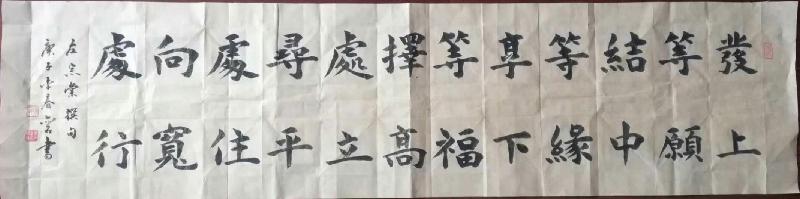 發上
等願
結中
等緣
享下
等福
擇高
處立
尋平
處住
向寬
處行
左宗棠撰句
庚子春書